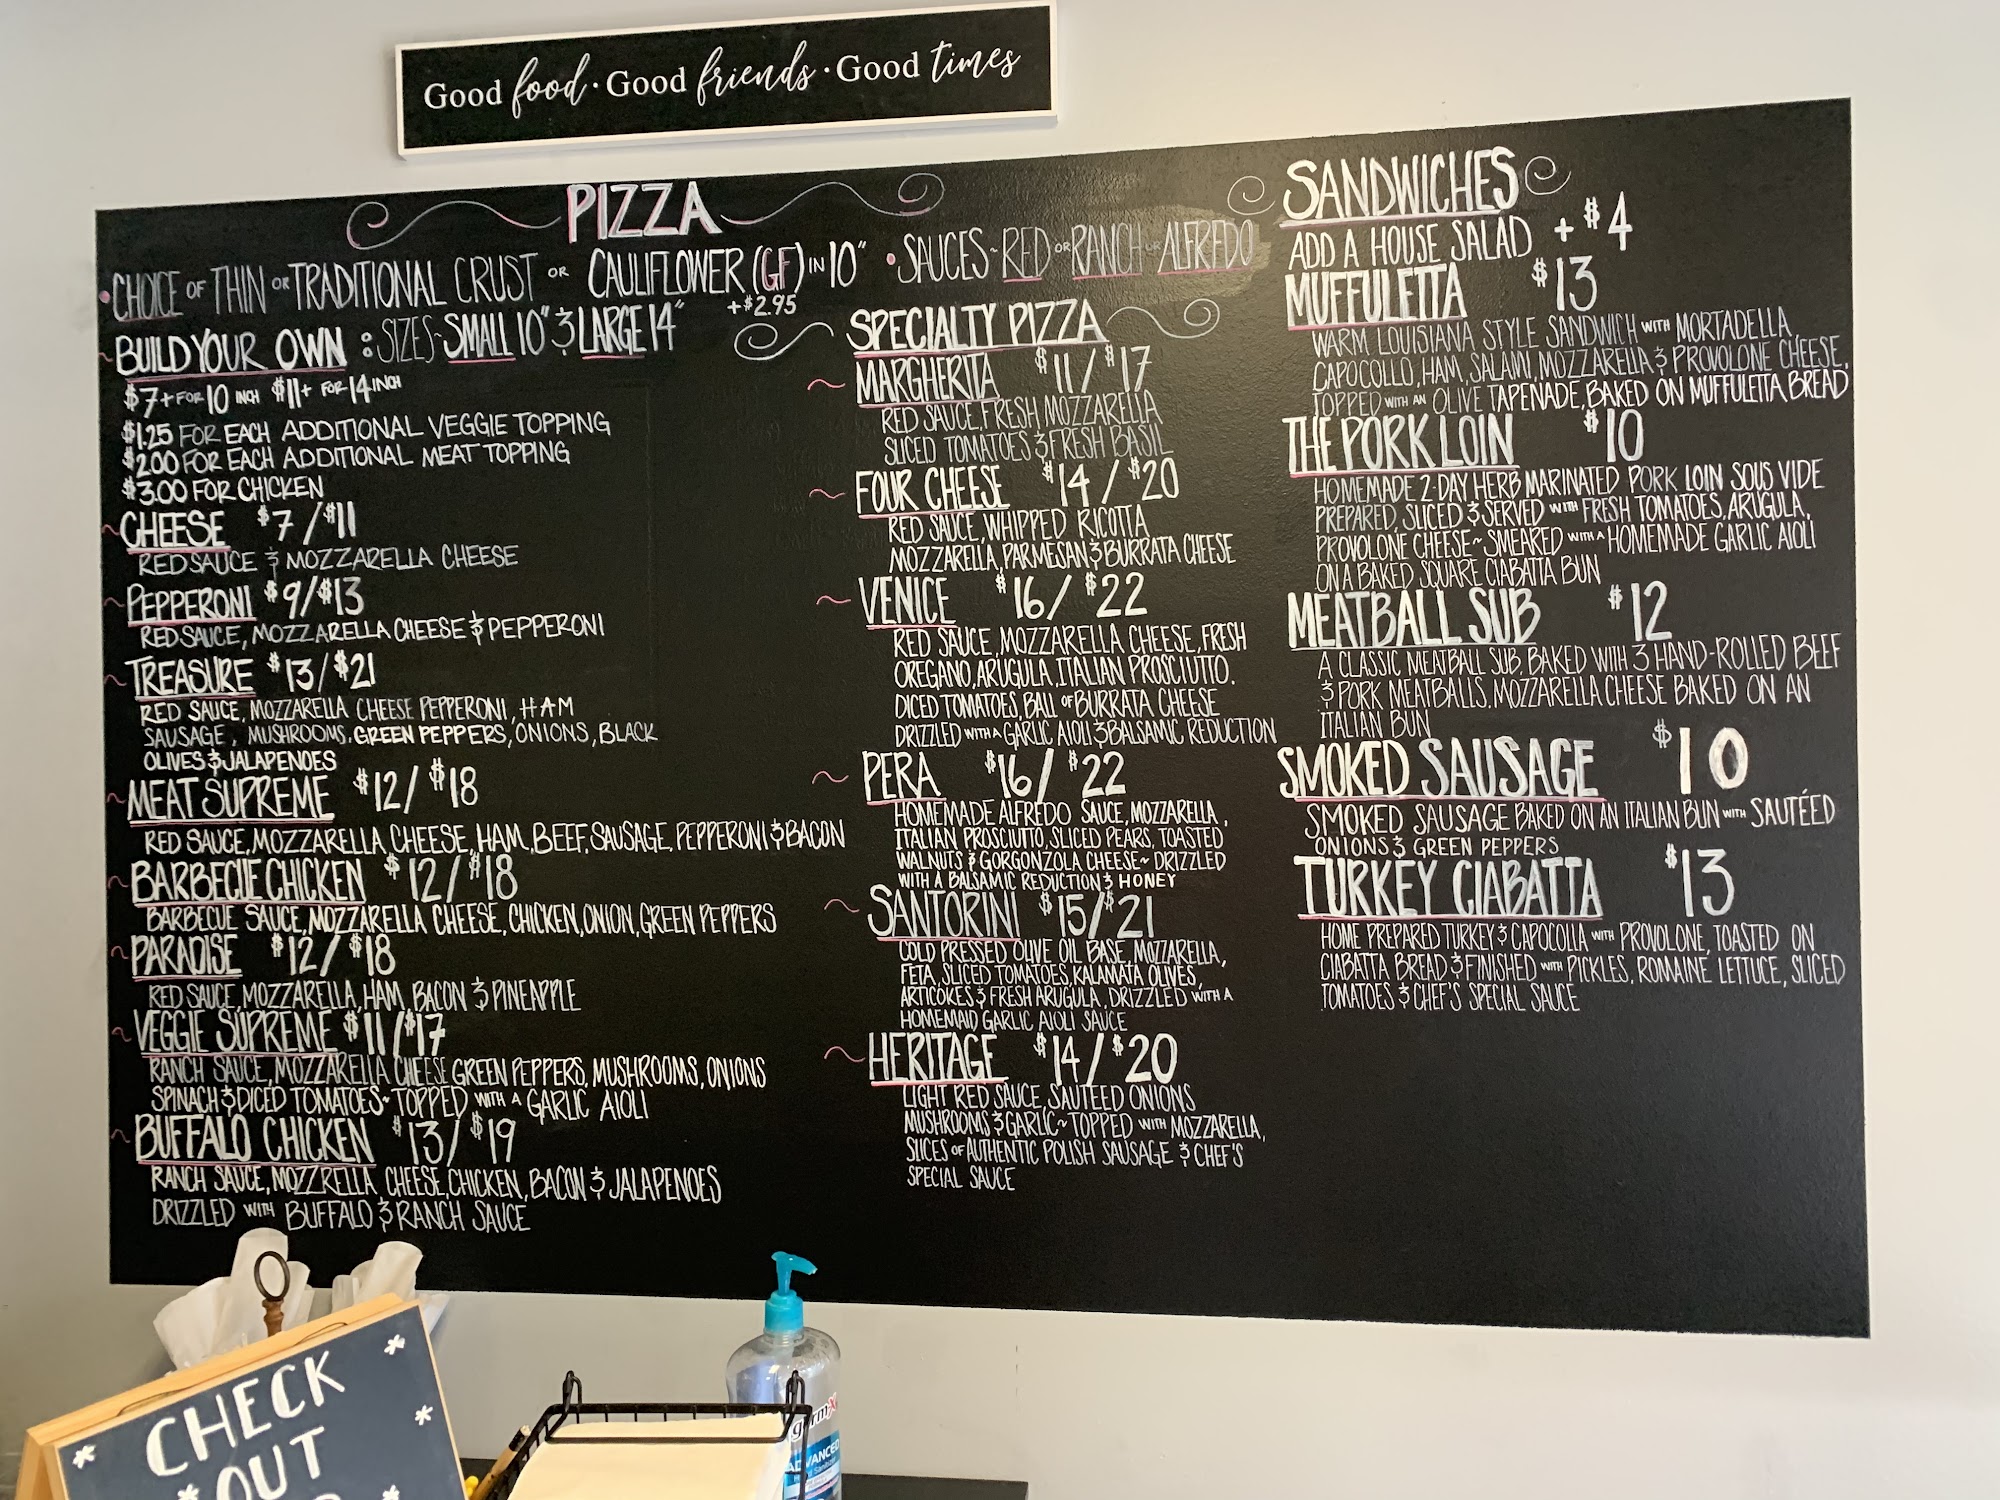 Good food · Good friends · Good times
PIZZA
• CHOICE OF THIN OR TRADITIONAL CRUST OR CAULIFLOWER (GF) IN 10" • SAUCES~RED OR RANCH OR ALFREDO
+$2.95
BUILD YOUR OWN : SIZES~SMALL 10" & LARGE 14"
$7+ FOR 10 INCH $11+ FOR 14 INCH
$1.25 FOR EACH ADDITIONAL VEGGIE TOPPING
$2.00 FOR EACH ADDITIONAL MEAT TOPPING
$3.00 FOR CHICKEN
~ CHEESE $7/$11
RED SAUCE & MOZZARELLA CHEESE
~ PEPPERONI $9/$13
RED SAUCE, MOZZARELLA CHEESE & PEPPERONI
~ TREASURE $13/$21
RED SAUCE, MOZZARELLA CHEESE PEPPERONI, HAM
SAUSAGE, MUSHROOMS, GREEN PEPPERS, ONIONS, BLACK
OLIVES & JALAPENOES
~ MEAT SUPREME $12/$18
RED SAUCE, MOZZARELLA CHEESE, HAM, BEEF, SAUSAGE, PEPPERONI & BACON
~ BARBECUE CHICKEN $12/$18
BARBECUE SAUCE, MOZZARELLA CHEESE, CHICKEN, ONION, GREEN PEPPERS
~ PARADISE $12/$18
RED SAUCE, MOZZARELLA, HAM, BACON & PINEAPPLE
~ VEGGIE SUPREME $11/$17
RANCH SAUCE, MOZZARELLA CHEESE GREEN PEPPERS, MUSHROOMS, ONIONS
SPINACH & DICED TOMATOES~TOPPED WITH A GARLIC AIOLI
~ BUFFALO CHICKEN $13/$19
RANCH SAUCE, MOZZRELLA CHEESE, CHICKEN, BACON & JALAPENOES
DRIZZLED WITH BUFFALO & RANCH SAUCE
SPECIALTY PIZZA
~ MARGHERITA $11/$17
RED SAUCE, FRESH MOZZARELLA
SLICED TOMATOES & FRESH BASIL
~ FOUR CHEESE $14/$20
RED SAUCE, WHIPPED RICOTTA
MOZZARELLA, PARMESAN & BURRATA CHEESE
~ VENICE $16/$22
RED SAUCE, MOZZARELLA CHEESE, FRESH
OREGANO, ARUGULA, ITALIAN PROSCIUTTO.
DICED TOMATOES, BALL OF BURRATA CHEESE
DRIZZLED WITH A GARLIC AIOLI & BALSAMIC REDUCTION
~ PERA $16/$22
HOMEMADE ALFREDO SAUCE, MOZZARELLA,
ITALIAN PROSCIUTTO, SLICED PEARS, TOASTED
WALNUTS & GORGONZOLA CHEESE~DRIZZLED
WITH A BALSAMIC REDUCTION & HONEY
~ SANTORINI $15/$21
COLD PRESSED OLIVE OIL BASE, MOZZARELLA,
FETA, SLICED TOMATOES, KALAMATA OLIVES,
ARTICOKES & FRESH ARUGULA, DRIZZLED WITH A
HOMEMAID GARLIC AIOLI SAUCE
~ HERITAGE $14/$20
LIGHT RED SAUCE, SAUTEED ONIONS
MUSHROOMS & GARLIC~TOPPED WITH MOZZARELLA,
SLICES OF AUTHENTIC POLISH SAUSAGE & CHEF'S
SPECIAL SAUCE
SANDWICHES
ADD A HOUSE SALAD +$4
MUFFULETTA $13
WARM LOUISIANA STYLE SANDWICH WITH MORTADELLA,
CAPOCOLLO, HAM, SALAMI, MOZZARELLA & PROVOLONE CHEESE,
TOPPED WITH AN OLIVE TAPENADE, BAKED ON MUFFULETTA BREAD
THE PORK LOIN $10
HOMEMADE 2-DAY HERB MARINATED PORK LOIN SOUS VIDE
PREPARED, SLICED & SERVED WITH FRESH TOMATOES, ARUGULA,
PROVOLONE CHEESE~SMEARED WITH A HOMEMADE GARLIC AIOLI
ON A BAKED SQUARE CIABATTA BUN
MEATBALL SUB $12
A CLASSIC MEATBALL SUB, BAKED WITH 3 HAND-ROLLED BEEF
& PORK MEATBALLS, MOZZARELLA CHEESE BAKED ON AN
ITALIAN BUN
SMOKED SAUSAGE $10
SMOKED SAUSAGE BAKED ON AN ITALIAN BUN WITH SAUTÉED
ONIONS & GREEN PEPPERS
TURKEY CIABATTA $13
HOME PREPARED TURKEY & CAPOCOLLA WITH PROVOLONE, TOASTED ON
CIABATTA BREAD & FINISHED WITH PICKLES, ROMAINE LETTUCE, SLICED
TOMATOES & CHEF'S SPECIAL SAUCE
CHECK
OUT
germ-X
ADVANCED